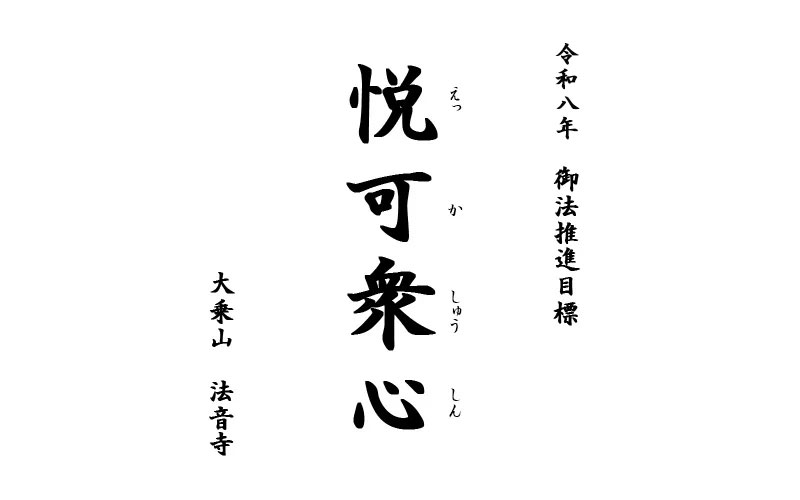 令和八年 御法推進目標
悦可衆心
えっ か しゅう しん
大乗山 法音寺